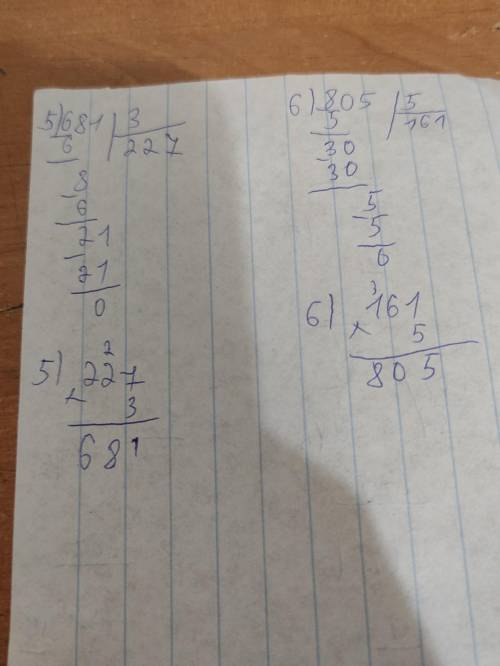 5) 681 | 3
6 227
8
6
21
21
0
5) 2
227
× 3
681
6) 805 | 5
5 161
30
30
5
5
6
6) 3
161
× 5
805